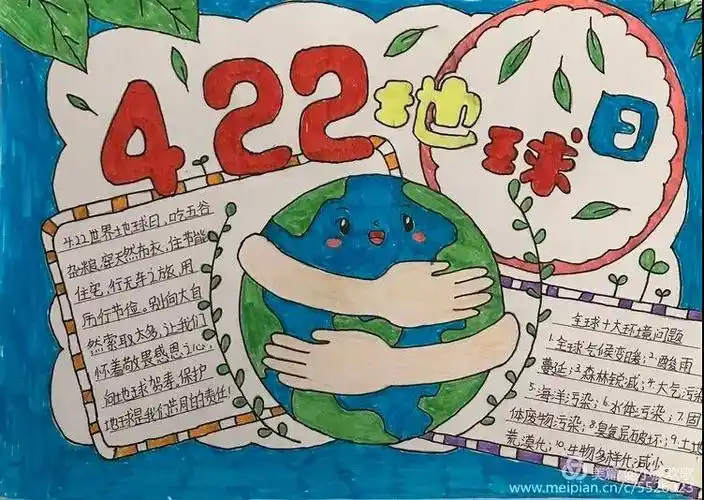 422地球日
4.22世界地球日，吃五谷
杂粮，穿天然布衣，住节能
住宅，行无车之旅，用
所行节俭。别向大自
然索取太多，让我们
怀着敬畏感恩之心，
向地球贺寿，保护
地球是我们共同的责任！
全球十大环境问题
1.全球气候变暖；2.酸雨
蔓延；3.森林锐减；4.大气污染
5.海洋污染；6.水体污染；7.固
体废物污染；8.臭氧层破坏；9.土地
荒漠化；10.生物多样化减少
美篇
www.meipian.cn/c/5526923